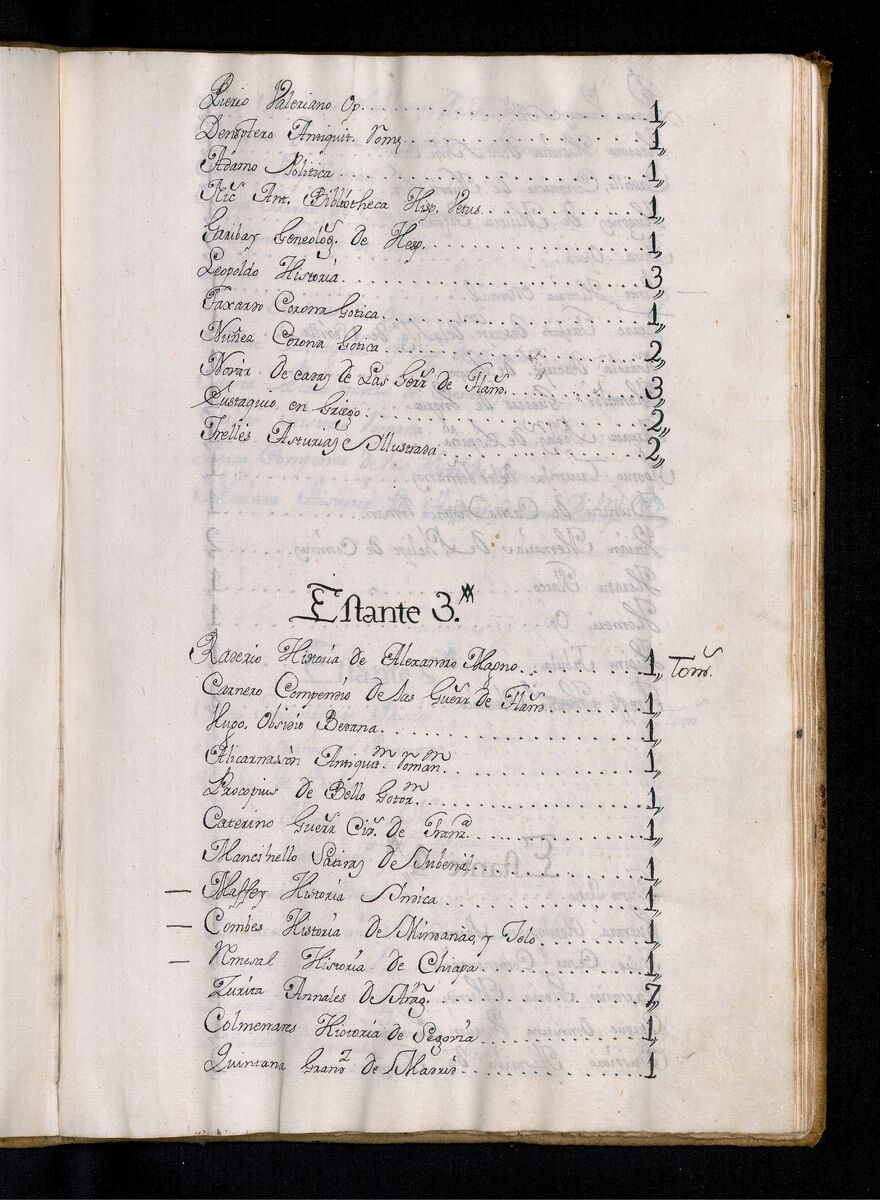 Pierio Valeriano Op. 1,,
Dempstero Antiquit. Rom. 1,,
Adamo Politica 1,,
Nic. Ant. Bibliotheca Hisp. Vetus. 1,,
Garibay Geneolog. de Hesp. 1,,
Leopoldo Historia 3,,
Faxardo Corona Gotica 1,,
Nuñez Corona Gotica 2,,
de Las Guerr. de Fland. 3,,
Eustaquio en Griego 2,,
Trelles Asturias Illustrada 2,,
Estante 3.
Raderio Historia de Alexandro Magno 1,, Tom.
Carnero Compendio de las Guerr. de Fland. 1,,
Hugo. Obsidio Bredana. 1,,
Alicarnason Antiquit. Roman. 1,,
Procopius de Bello Gotor. 1,,
Caterino Guerr. Civ. de Franz. 1,,
Mancinello Satiras de Jubenal 1,,
— Maffey Historia Indica 1,,
— Combes Historia de Mindanao, y Jolo 1,,
— Remesal Historia de Chiapa 1,,
Zurita Annales de Arag. 7,,
Colmenares Historia de Segovia 1,,
Quintana Grand. de Madrid 1,,